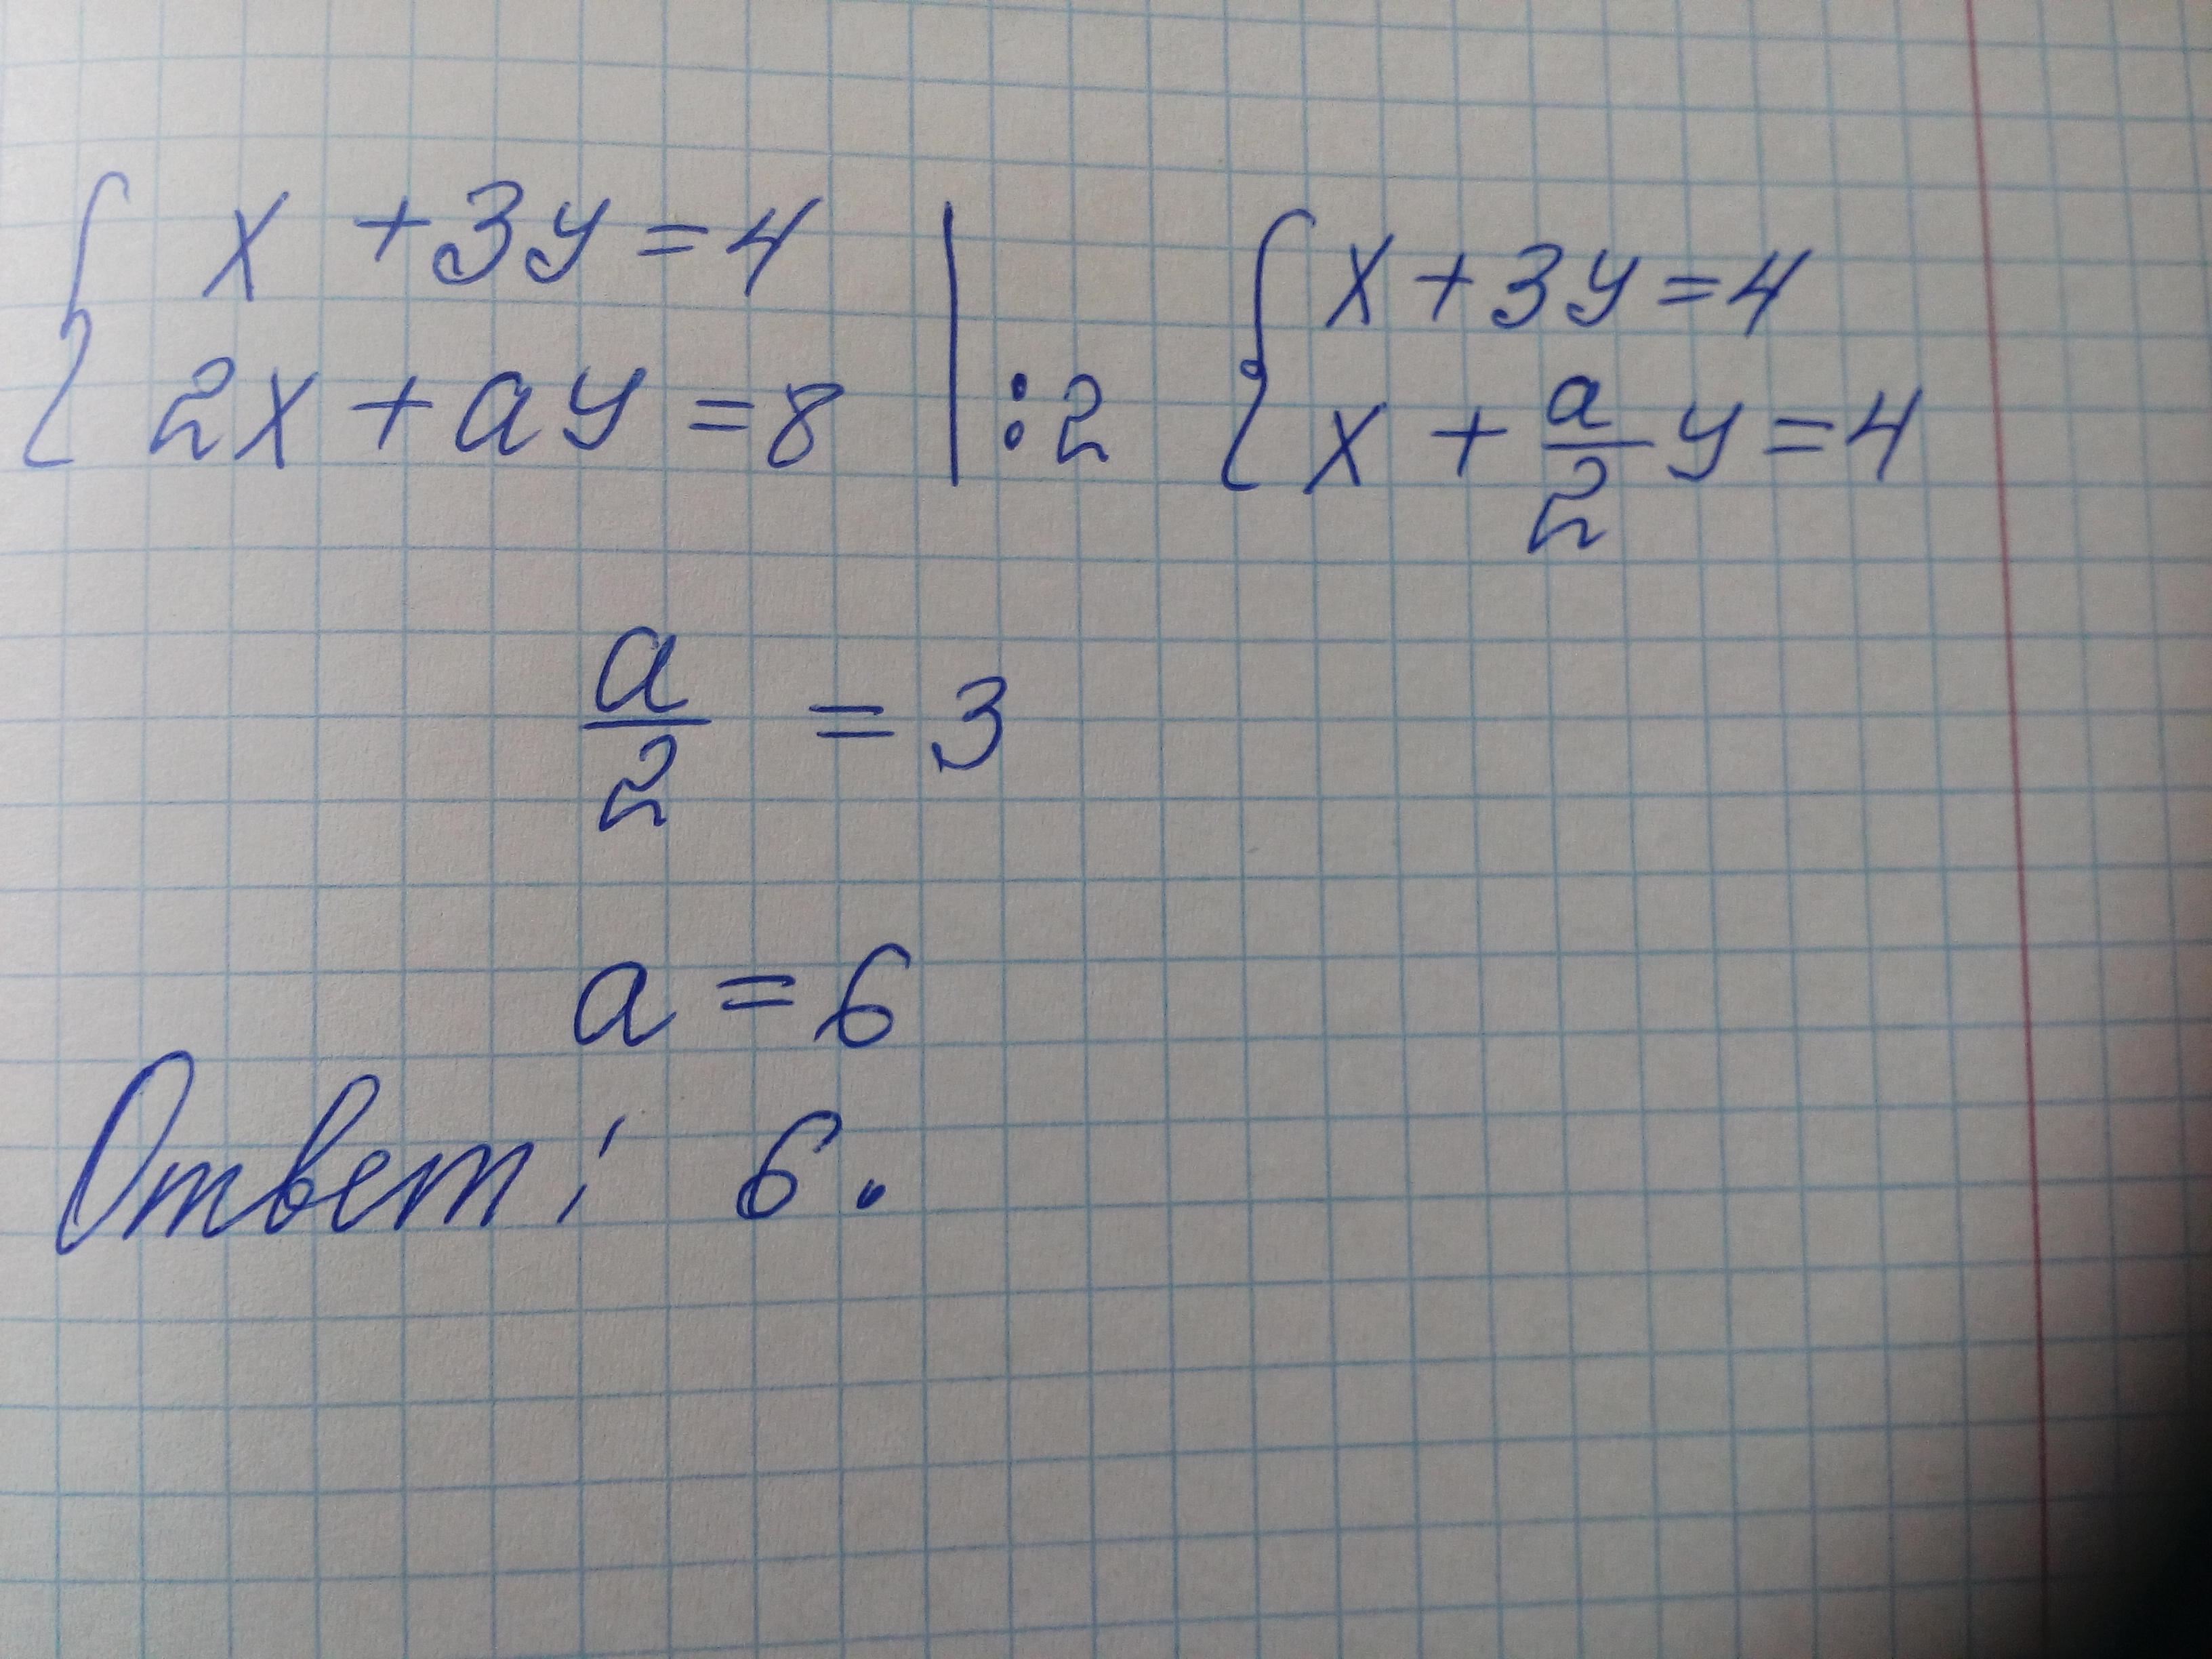 { x + 3y = 4 | { x + 3y = 4
{ 2x + ay = 8 | :2 { x + a/2 y = 4
a/2 = 3
a = 6
Ответ: 6.